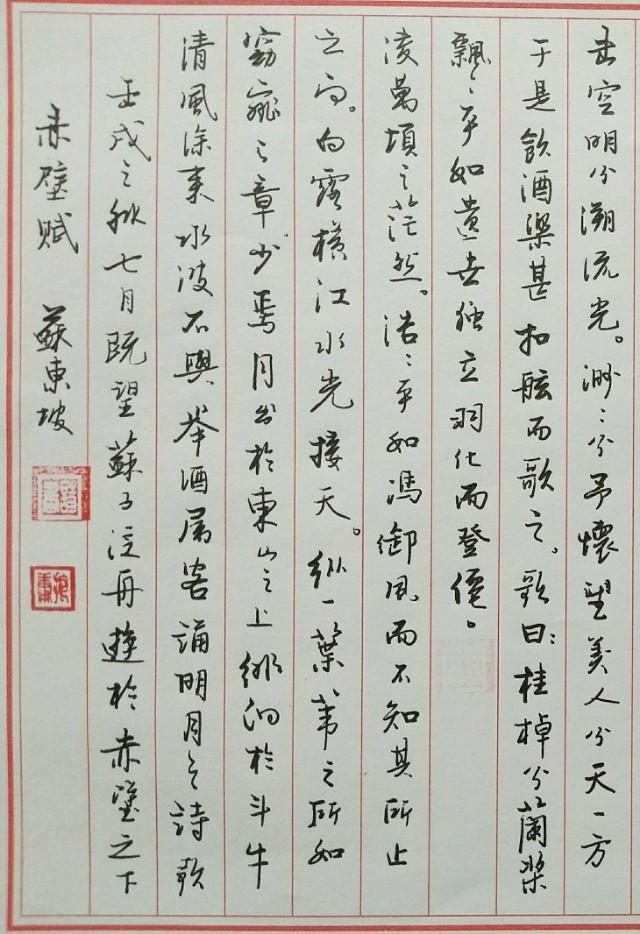 赤壁赋 蘇東坡
壬戌之秋七月既望蘇子泛舟遊於赤壁之下
清風徐来水波不興举酒属客誦明月之詩歌
窈窕之章少焉月出於東山之上徘徊於斗牛
之间。白露横江水光接天。纵一葉苇之所如
凌萬頃之茫然。浩〻乎如馮御風而不知其所止
飄〻乎如遺世独立羽化而登僊。
于是飲酒樂甚扣舷而歌之。歌曰:桂棹兮蘭桨
击空明兮溯流光。渺〻兮予懷望美人兮天一方